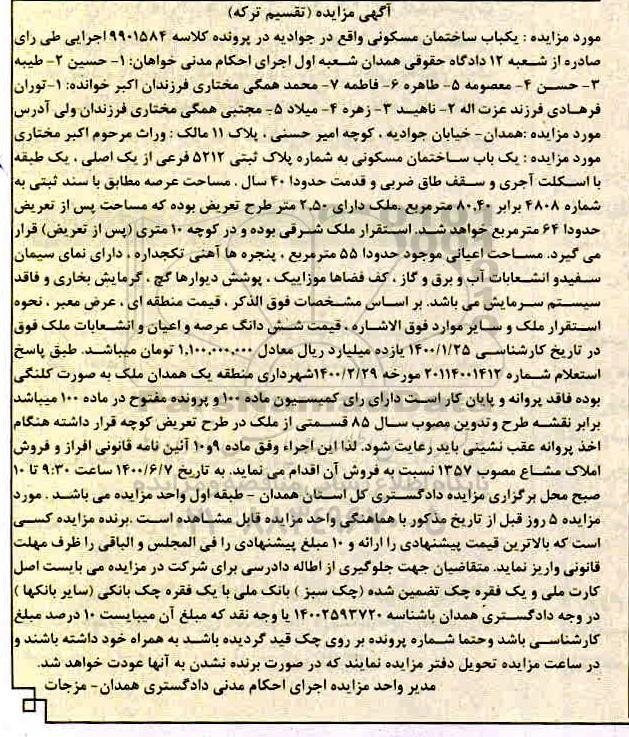 آگهی مزایده (تقسیم ترکه)
مورد مزایده : یکباب ساختمان مسکونی واقع در جوادیه در پرونده کلاسه ۹۹۰۱۵۸۴ اجرایی طی رای
صادره از شعبه ۱۲ دادگاه حقوقی همدان شعبه اول اجرای احکام مدنی خواهان: ۱- حسین ۲- طیبه
۳- حسن ۴- معصومه ۵- طاهره ۶- فاطمه ۷- محمد همگی مختاری فرزندان اکبر خوانده: ۱-توران
فرهادی فرزند عزت اله ۲- ناهید ۳- زهره ۴- میلاد ۵- مجتبی همگی مختاری فرزندان ولی آدرس
مورد مزایده :همدان- خیابان جوادیه ، کوچه امیر حسنی ، پلاک ۱۱ مالک : وراث مرحوم اکبر مختاری
مورد مزایده : یک باب ساختمان مسکونی به شماره پلاک ثبتی ۵۲۱۲ فرعی از یک اصلی ، یک طبقه
با اسکلت آجری و سقف طاق ضربی و قدمت حدودا ۴۰ سال . مساحت عرصه مطابق با سند ثبتی به
شماره ۴۸۰۸ برابر ۸۰,۴۰ مترمربع .ملک دارای ۲,۵۰ متر طرح تعریض بوده که مساحت پس از تعریض
حدودا ۶۴ مترمربع خواهد شد. استقرار ملک شرقی بوده و در کوچه ۱۰ متری (پس از تعریض) قرار
می گیرد. مساحت اعیانی موجود حدودا ۵۵ مترمربع ، پنجره ها آهنی تکجداره ، دارای نمای سیمان
سفیدو انشعابات آب و برق و گاز ، کف فضاها موزاییک ، پوشش دیوارها گچ ، گرمایش بخاری و فاقد
سیستم سرمایش می باشد. بر اساس مشخصات فوق الذکر ، قیمت منطقه ای ، عرض معبر ، نحوه
استقرار ملک و سایر موارد فوق الاشاره ، قیمت شش دانگ عرصه و اعیان و انشعابات ملک فوق
در تاریخ کارشناسی ۱۴۰۰/۱/۲۵ یازده میلیارد ریال معادل ۱,۱۰۰,۰۰۰,۰۰۰ تومان میباشد. طبق پاسخ
استعلام شماره ۲۰۱۱۴۰۰۱۴۱۲ مورخه ۱۴۰۰/۲/۲۹شهرداری منطقه یک همدان ملک به صورت کلنگی
بوده فاقد پروانه و پایان کار است دارای رای کمیسیون ماده ۱۰۰ و پرونده مفتوح در ماده ۱۰۰ میباشد
برابر نقشه طرح وتدوین مصوب سال ۸۵ قسمتی از ملک در طرح تعریض کوچه قرار داشته هنگام
اخذ پروانه عقب نشینی باید رعایت شود. لذا این اجراء وفق ماده ۹و۱۰ آئین نامه قانونی افراز و فروش
املاک مشاع مصوب ۱۳۵۷ نسبت به فروش آن اقدام می نماید. به تاریخ ۱۴۰۰/۶/۷ ساعت ۹:۳۰ تا ۱۰
صبح محل برگزاری مزایده دادگستری کل استان همدان - طبقه اول واحد مزایده می باشد . مورد
مزایده ۵ روز قبل از تاریخ مذکور با هماهنگی واحد مزایده قابل مشاهده است .برنده مزایده کسی
است که بالاترین قیمت پیشنهادی را ارائه و ۱۰ مبلغ پیشنهادی را فی المجلس و الباقی را ظرف مهلت
قانونی واریز نماید. متقاضیان جهت جلوگیری از اطاله دادرسی برای شرکت در مزایده می بایست اصل
کارت ملی و یک فقره چک تضمین شده (چک سبز ) بانک ملی با یک فقره چک بانکی (سایر بانکها )
در وجه دادگستری همدان باشناسه ۱۴۰۰۲۵۹۳۷۲۰ یا وجه نقد که مبلغ آن میبایست ۱۰ درصد مبلغ
کارشناسی باشد وحتما شماره پرونده بر روی چک قید گردیده باشد به همراه خود داشته باشند و
در ساعت مزایده تحویل دفتر مزایده نمایند که در صورت برنده نشدن به آنها عودت خواهد شد.
مدیر واحد مزایده اجرای احکام مدنی دادگستری همدان- مزجات